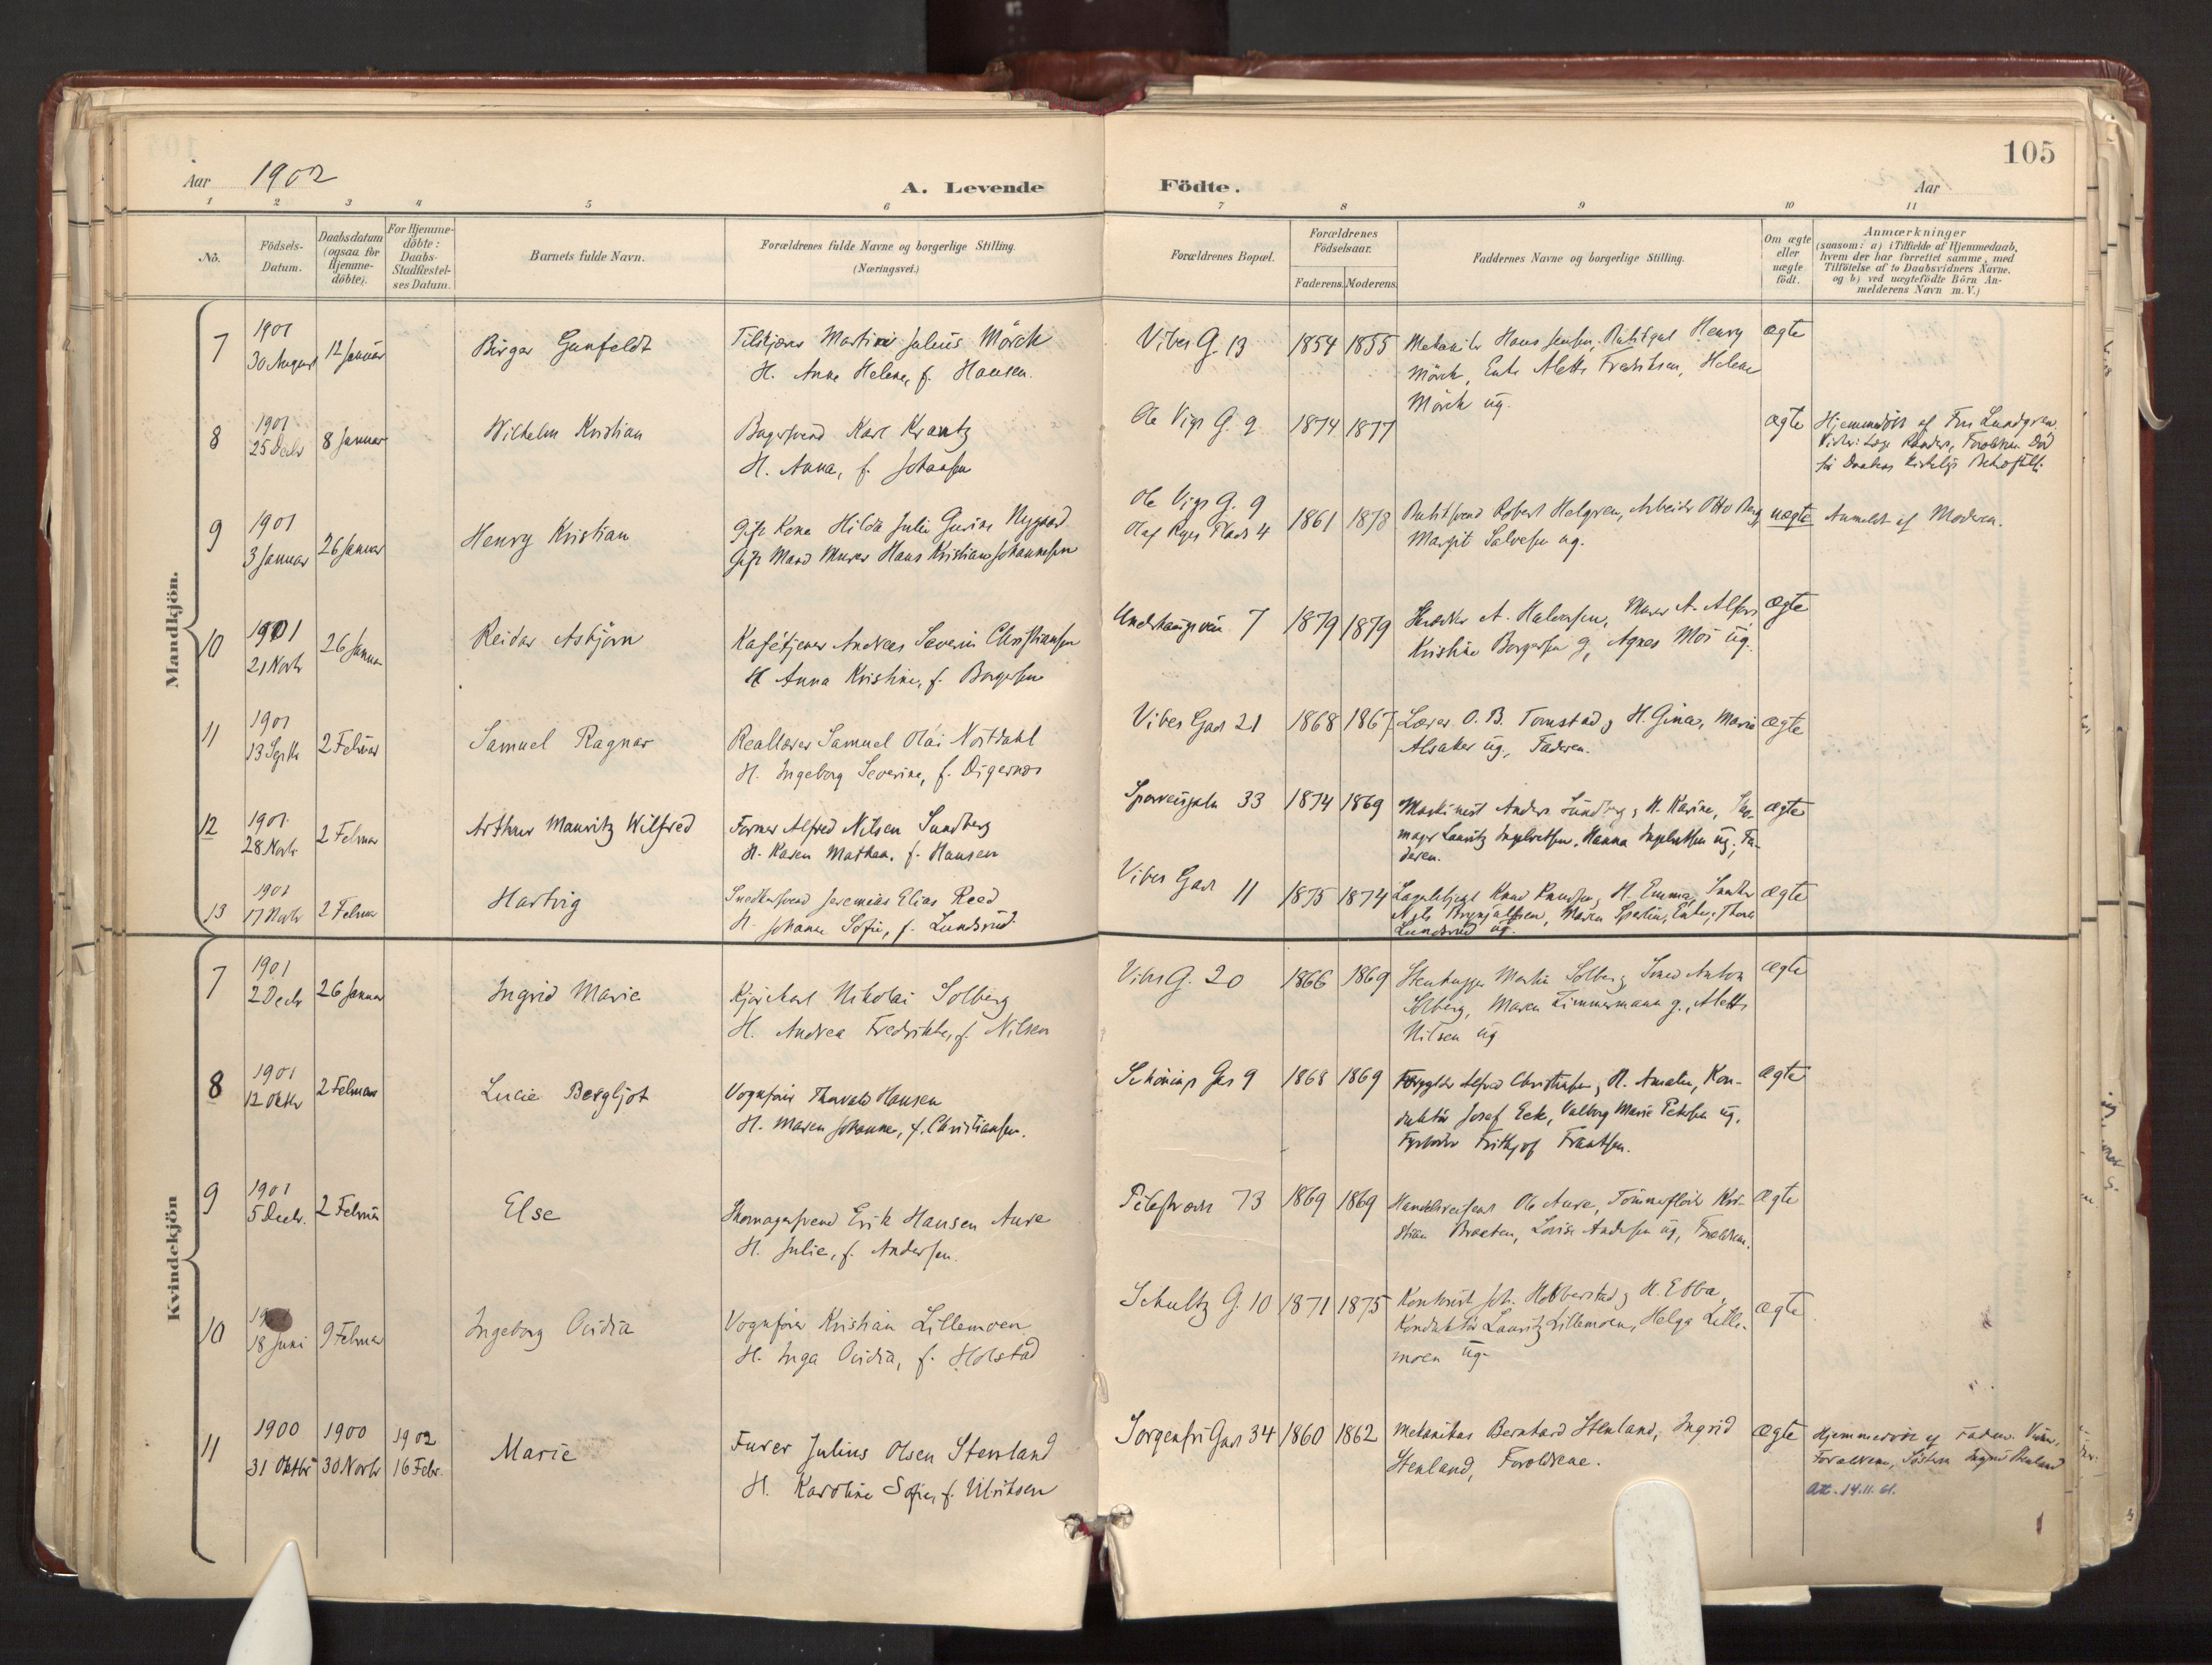 105
Aar 1902
A. Levende Födte.
Aar
1 2 3 4 5 6 7 8 9 10 11
No.
Födsels-
Datum.
Daabsdatum
(ogsaa for
Hjemme-
döbte).
For Hjemme-
döbte:
Daabs-
Stadfæstel-
ses Datum.
Barnets fulde Navn.
Forældrenes fulde Navne og borgerlige Stilling.
(Næringsvei.)
Forældrenes Bopæl.
Forældrenes
Fødselsaar.
Faderens. Moderens.
Faddernes Navne og borgerlige Stilling.
Om ægte
eller
uægte
født.
Anmærkninger
(saasom: a) i Tilfælde af Hjemmedaab,
hvem der har forrettet samme, med
Tilföielse af to Daabsvidners Navne,
og b) ved uægtefödte Börn An-
melderens Navn m. V.)
Mandkjön.
7
1901
30 August
12 Januar
Birger Gunfeldt
Martin Julius Mörch
H. Anna Helene, f. Hansen.
Vibes G. 13
1854 1855
Hans Jensen, Henry
Mörch, Enke Alette Fredriksen, Helene
Mörch ug.
ægte
8
1901
25 Decbr
8 Januar
Wilhelm Kristian
Bagersvend Karl Krantz
H. Anna, f. Johansen
Ole Vigs G. 9
1874 1877
ægte
Hjemmedöbt af Fru Lundgren
9
1901
3 Januar
26 Januar
Henry Kristian
Gift Kone Hilda Julie Nygaard
Gift Mand Murer Hans Kristian Johannesen
Ole Vigs G. 9
Olaf Ryes Plads 4
1861 1878
Robert Helgren, Arbeider Otto
Margit Salvesen ug.
uægte
Anmeldt af Moderen.
10
1901
21 Novbr
26 Januar
Reidar Asbjörn
Kafétjener Andreas Severin Christiansen
H. Anna Kristine, f. Borgersen
7
1879 1879
A. Halvorsen, Murer A.
Kristine Borgersen g, Agnes Moi ug.
ægte
11
1901
13 Septbr
2 Februar
Samuel Ragnar
Reallærer Samuel Olai Nordahl
H. Ingeborg Severine, f. Digernes
Vibes Gade 21
1868 1867
Lærer O. B. Tornstad, H. Gina, Marie
Alsaker ug., Faderen.
ægte
12
1901
28 Novbr
2 Februar
Arthur Mauritz Wilfred
Former Alfred Nilsen Sundberg
H. Karen Mathea, f. Hansen
Sporveisgaden 33
1874 1869
Maskinist Anders Sundberg, H. Karine, Sko-
mager Lauritz Ingebretsen, Hanna Ingebretsen ug., Fa-
deren.
ægte
13
1901
17 Novbr
2 Februar
Hartvig
Snedkersvend Jeremias Elias Reed
H. Johanne Sofie, f. Lundsrud.
Vibes Gade 11
1875 1874
Knud Knudsen, H. Emma, Snedker
Nils Brynjulfsen, Maren
Lundsrud ug.
ægte
Kvindekjön
7
1901
2 Decbr
26 Januar
Ingrid Marie
Kjörekarl Nikolai Solberg
H. Andrea Fredrikke, f. Nilsen
Vibes G. 20
1866 1869
Stenhugger Martin Solberg, Smed Anton
Solberg, Maren Zimmermann g., Alette
Nilsen ug
ægte
8
1901
12 Oktbr
2 Februar
Lucie Bergljot
Vognfører Thorvald Hansen
H. Maren Johanne, f. Christiansen.
Schönings Gd 9
1868 1869
Forgylder Alfred Christiansen, H. Amalie, Kon-
duktör Josef Eck, Valborg Marie Petersen ug.
Fyrböder Frithjof Frantsen.
ægte
9
1901
5 Decbr.
2 Februar
Else
Skomagersvend Erik Hansen Aure
H. Julie, f. Andersen.
Pilestrædet 73
1869 1869
Ole Aure, Kri-
stian Braaten, Lovise Andersen ug, Forældrene.
ægte
10
18 Juni
9 Februar
Ingeborg Ovidia
Vognfører Kristian Lillemoen
H. Inga Ovidia, f. Holstad
Schultz G. 10
1871 1875
Kontorist Joh. Hobberstad, H. Ebba,
Konduktör Lauritz Lillemoen, Helga Lille-
moen ug.
ægte
11
1900
31 Oktbr
1900
30 Novbr
1902
16 Febr.
Marie
Furer Julius Olsen Stenland
H. Karoline Sofie, f. Ulriksen
Sorgenfri Gade 34
1860 1862
Mekanikus Bernhard Stenland, Ingrid
Stenland, Forældrene.
ægte
Hjemmedöbt af Faderen.
Forældrene, Søsteren Ingrid Stenland
Att. 14.11.61.